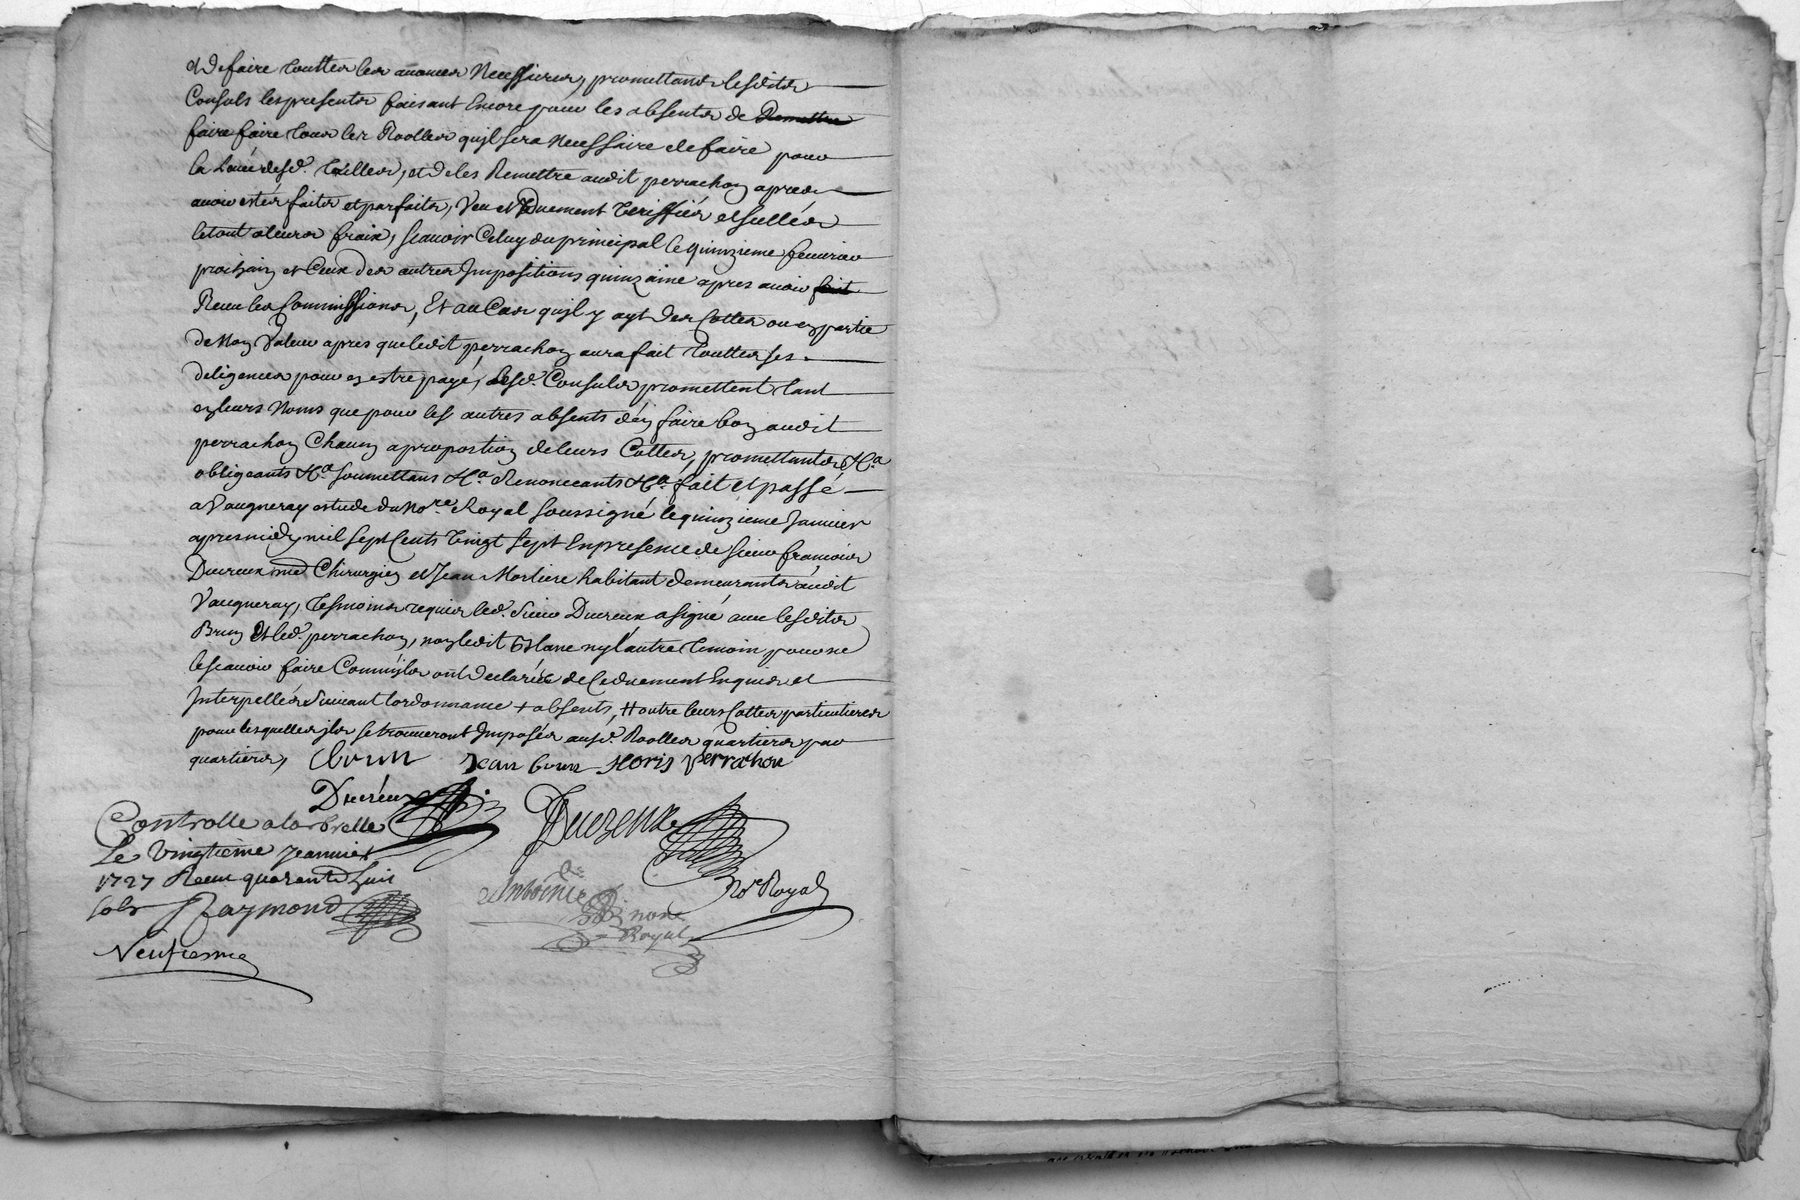 et de faire touttes les avances Necessaires, promettants lesdits
Consuls les presents faisant Encore pour les absents de Remettre
faire faire tous les Roolles quil sera Necessaire de faire pour
la Levée desd. tailles, et de les Remettre audit perrachon apres
avoir estés faits et parfaits, Veu et Duement Veriffiés et scellés
letout aleurs fraix, scavoir Celuy du principal le quinzieme fevrier
prochain et Ceux des autres Impositions quinzaine apres avoir fait
Receu les Commissions, Et au Cas quil y ayt des Cottes ou en partie
de Non Valeur apres que ledit perrachon aura fait touttes ses
deligences pour en estre payé, Lesd. Consuls promettent tant
en leurs Noms que pour les autres absents d'en faire bon audit
perrachon Chacun a proportion de leurs Cottes, promettants &a
obligeants &a soumettans &a Renonceants &a fait et passé
a Vaugneray estude du Nore Royal soussigné le quinzieme Janvier
apres midy mil sept Cents Vingt sept En presence de sieur francois
Ducreux me Chirurgien et Jean Morliere habitant demeurants audit
Vaugneray, tesmoins requis led. sieur Ducreux a signé avec lesdits
Brun et led. perrachon, non ledit Blanc ny l'autre temoin pour ne
le scavoir faire Comme ils ont declarés de Ce duement Enquis et
Interpellés suivant l'ordonnance + absents, # outre leurs Cottes particulieres
pour lesquelles ils se trouveront Imposés ausd. Roolles quartiers par
quartiers,
brun Jean brun Floris perrachon
Ducreux
Ducreux
Controlle a larbrelle
Le vingtieme Jeanvier
1727 Receu quarante huit
sols Raymond
Nore Royal
Antoine
nore
Royal